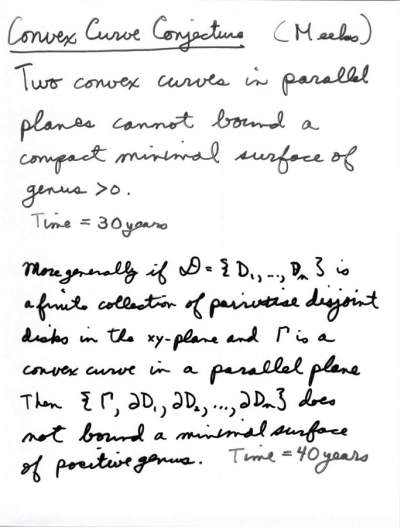 Convex Curve Conjecture (Meeks)
Two convex curves in parallel
planes cannot bound a
compact minimal surface of
genus >0.
Time = 30 years
More generally if 𝒟 = {D₁,..., Dₙ} is
a finite collection of pairwise disjoint
disks in the xy-plane and Γ is a
convex curve in a parallel plane
Then {Γ, ∂D₁, ∂D₂,..., ∂Dₙ} does
not bound a minimal surface
of positive genus. Time = 40 years